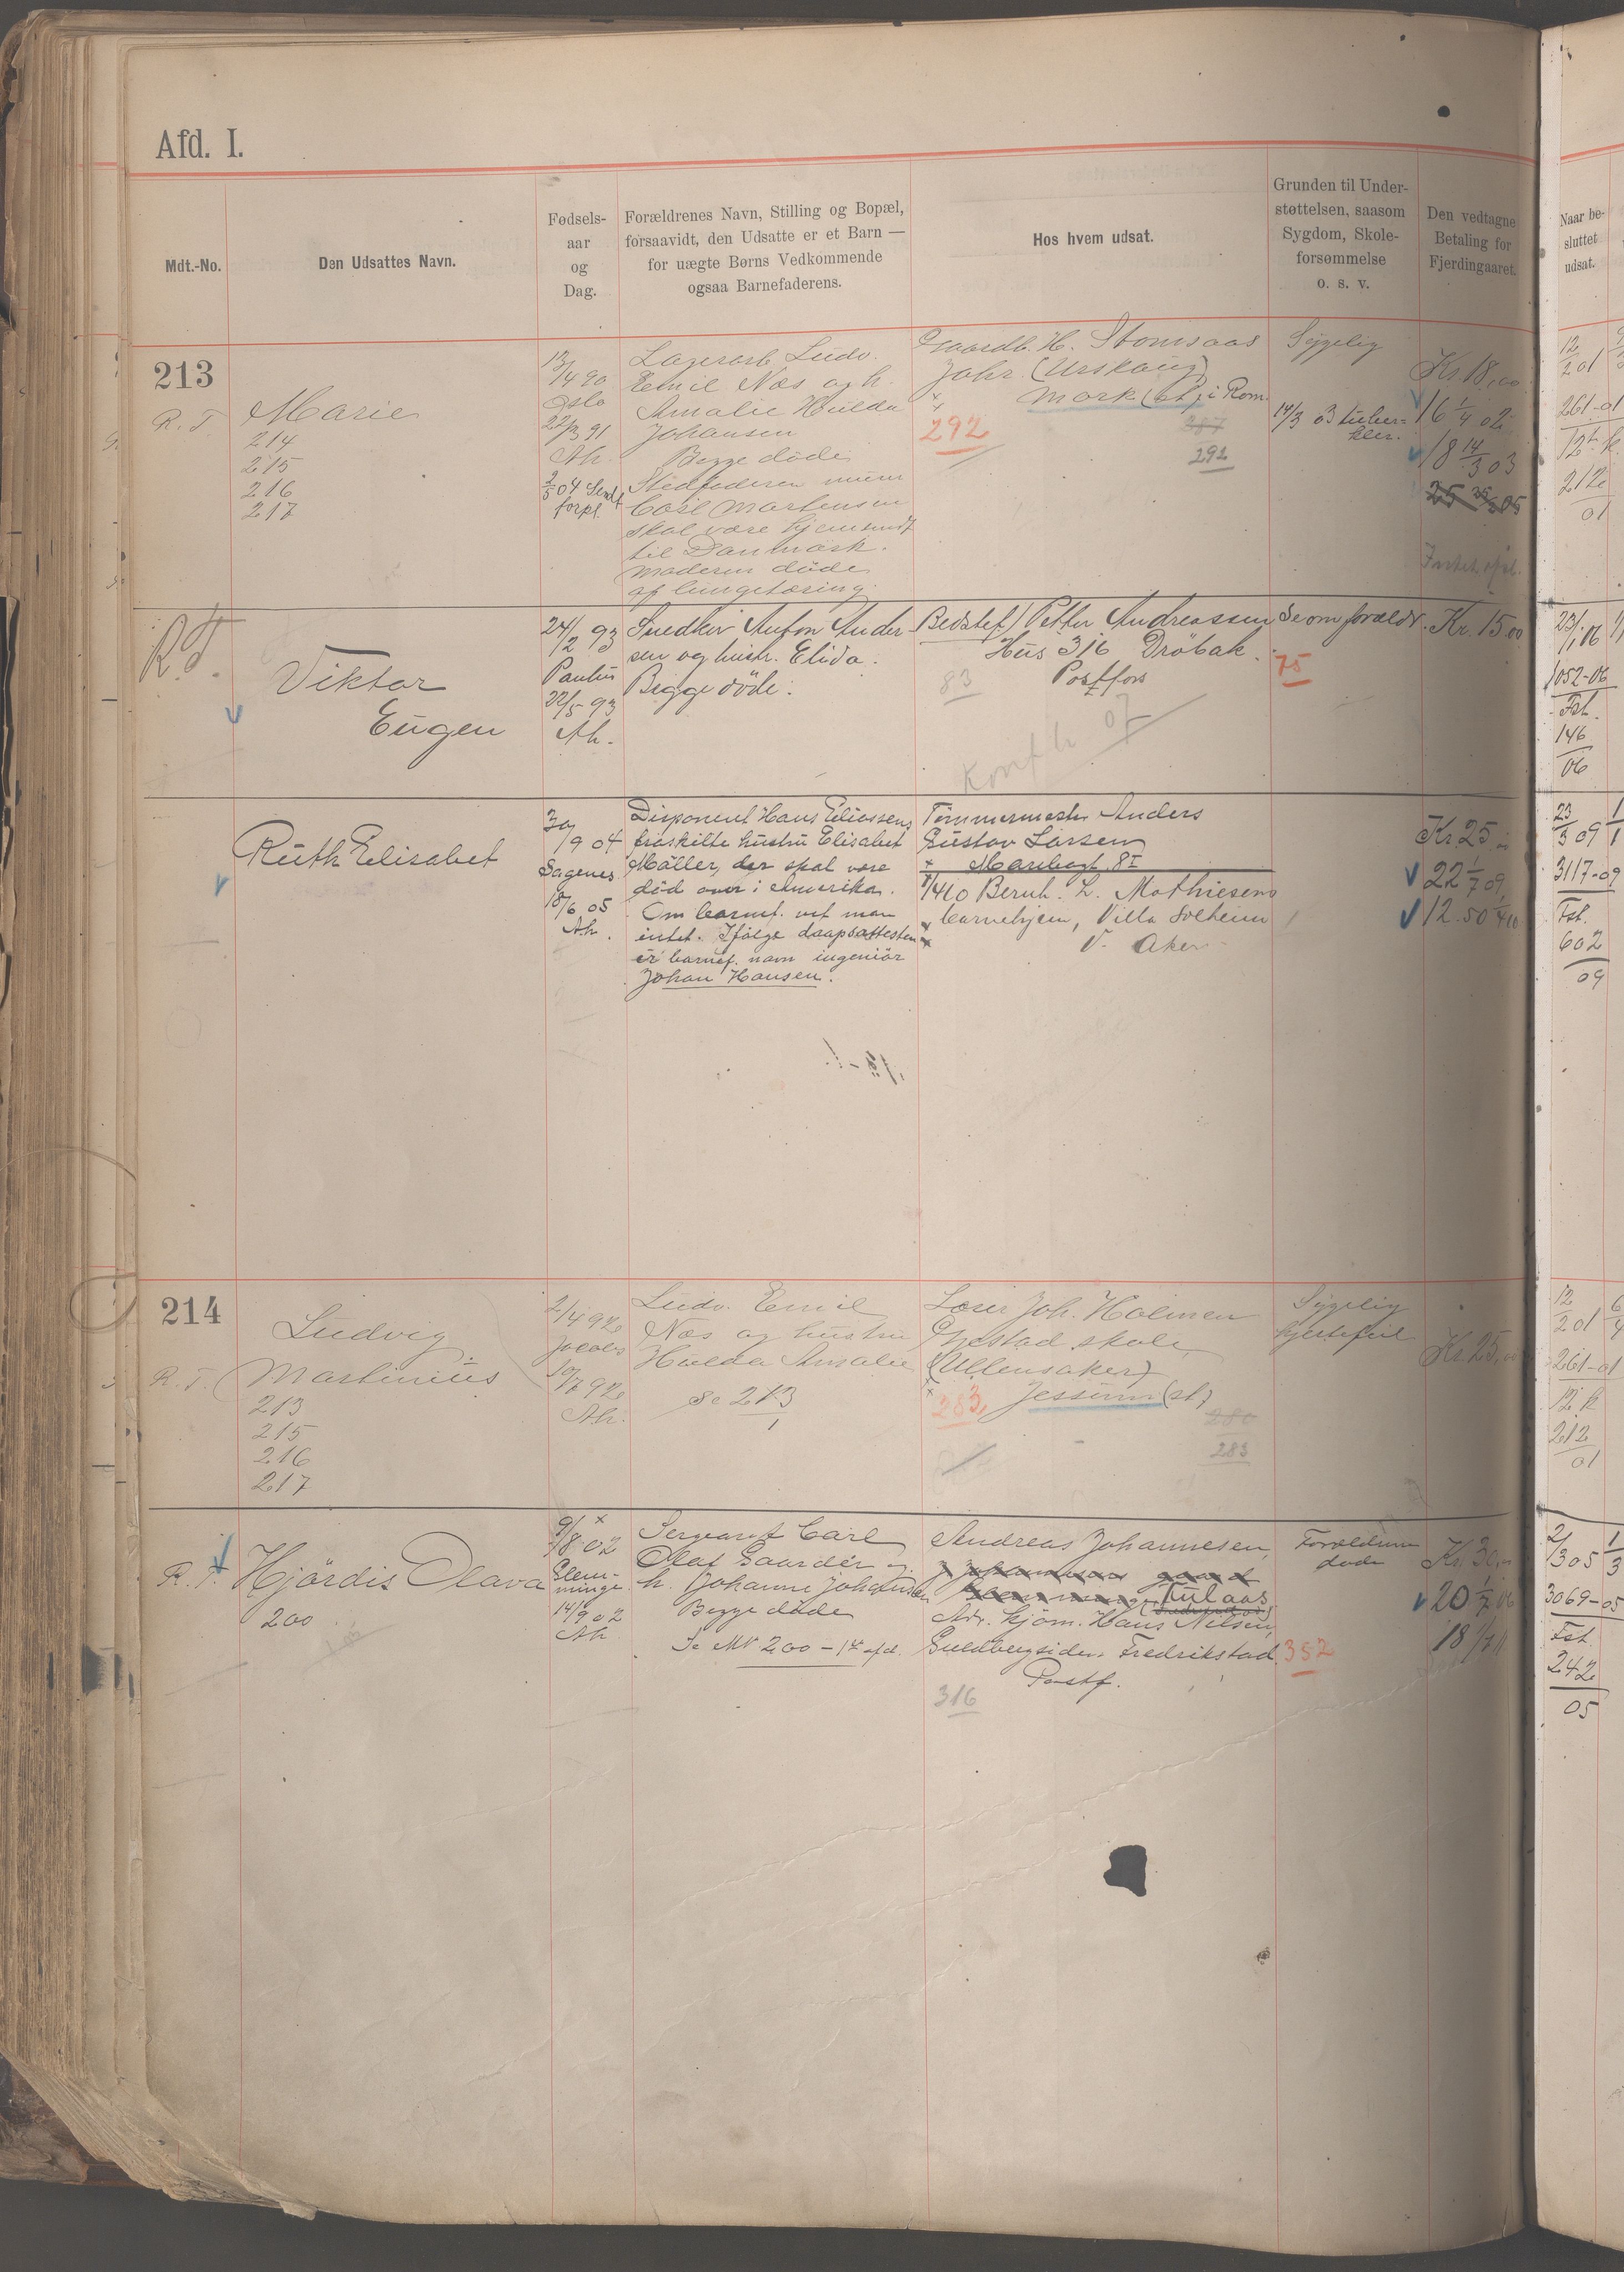 Afd. I.
Mdt.-No.
Den Udsattes Navn.
Fødsels-
aar
og
Dag.
Forældrenes Navn, Stilling og Bopæl,
forsaavidt, den Udsatte er et Barn —
for uægte Børns Vedkommende
ogsaa Barnefaderens.
Hos hvem udsat.
Grunden til Under-
støttelsen, saasom
Sygdom, Skole-
forsømmelse
o. s. v.
Den vedtagne
Betaling for
Fjerdingaaret.
Naar be-
sluttet
udsat.
213
R. T.
Marie
214
215
216
217
13/4 90
Oslo
22/3 91
Ah.
Lagerarb. Ludv.
Emil Næs og h.
Amalie Hulda
Johansen
Begge døde
Stedfaderen murer
Carl Martensen
skal være hjemsendt
til Danmark.
Moderen døde
af lungetæring.
Gaardb. H. Stomsaas
(Urskoug)
Mork (st) i Rom.
292
287
292
Sygelig
14/3 03 tuber-
kler.
Kr. 18,00
16 1/4 02
18 14/3 03
12/2 01
261-01
212
01
R. T.
Viktor
Eugen
24/2 93
Paulus
22/5 93
Ah.
Snedker Anton Ander
sen og hustr. Elida.
Begge døde.
Bedstef) Petter Andreassen
Hus 316 Drøbak.
Postfors
83
75
Konf. h 07
Se om foreldr.
Kr. 15.00
23/1 06
1052-06
Fst.
146
06
Ruth Elisabet
30/9 04
Sagenes
18/6 05
Ah.
Disponent Hans Eliassens
fraskilte hustru Elisabet
Møller, der skal være
død over i Amerika.
Om barnef. vet man
intet. Ifølge daapsattesten
er barnef. navn ingeniør
Johan Hansen.
Tømmermester Anders
Gustav Larsen
Maribogt. 8 I
1/4 10 Bernh. L. Mathiesens
barnehjem, Villa Solheim
V. Aker
Kr. 25
22 1/7 09
12.50 1/4 10
23/3 09
3117-09
Fst.
602
09
214
R. T.
Ludvig
Martinius
213
215
216
217
2/4 92
Jacobs
10/7 92
Ah.
Ludv. Emil
Næs og hustru
Hulda Amalie
Se 213
Læser Joh. Holmen
skole
(Ullensaker)
Jessum (st)
283
280
283
Sygelig
hjertefeil
Kr. 25,00
12/2 01
261-01
212
01
R. T.
Hjørdis Olava
200
9/8 02
Glem-
minge
14/9 02
Ah
Sergeant Carl
Olaf Gaarder og
h. Johanne Johansen
Begge døde
Se Mt 200 - 1ste afd.
Andreas Johannesen,
Kulaas
Adr. Kjøm. Hans Nilsen,
Guldbergsiden Fredrikstad
Postf.
316
352
Foreldrene
døde
Kr. 30
20 1/7 06
18 1/7 11
2/3 05
3069-05
Fst.
242
05